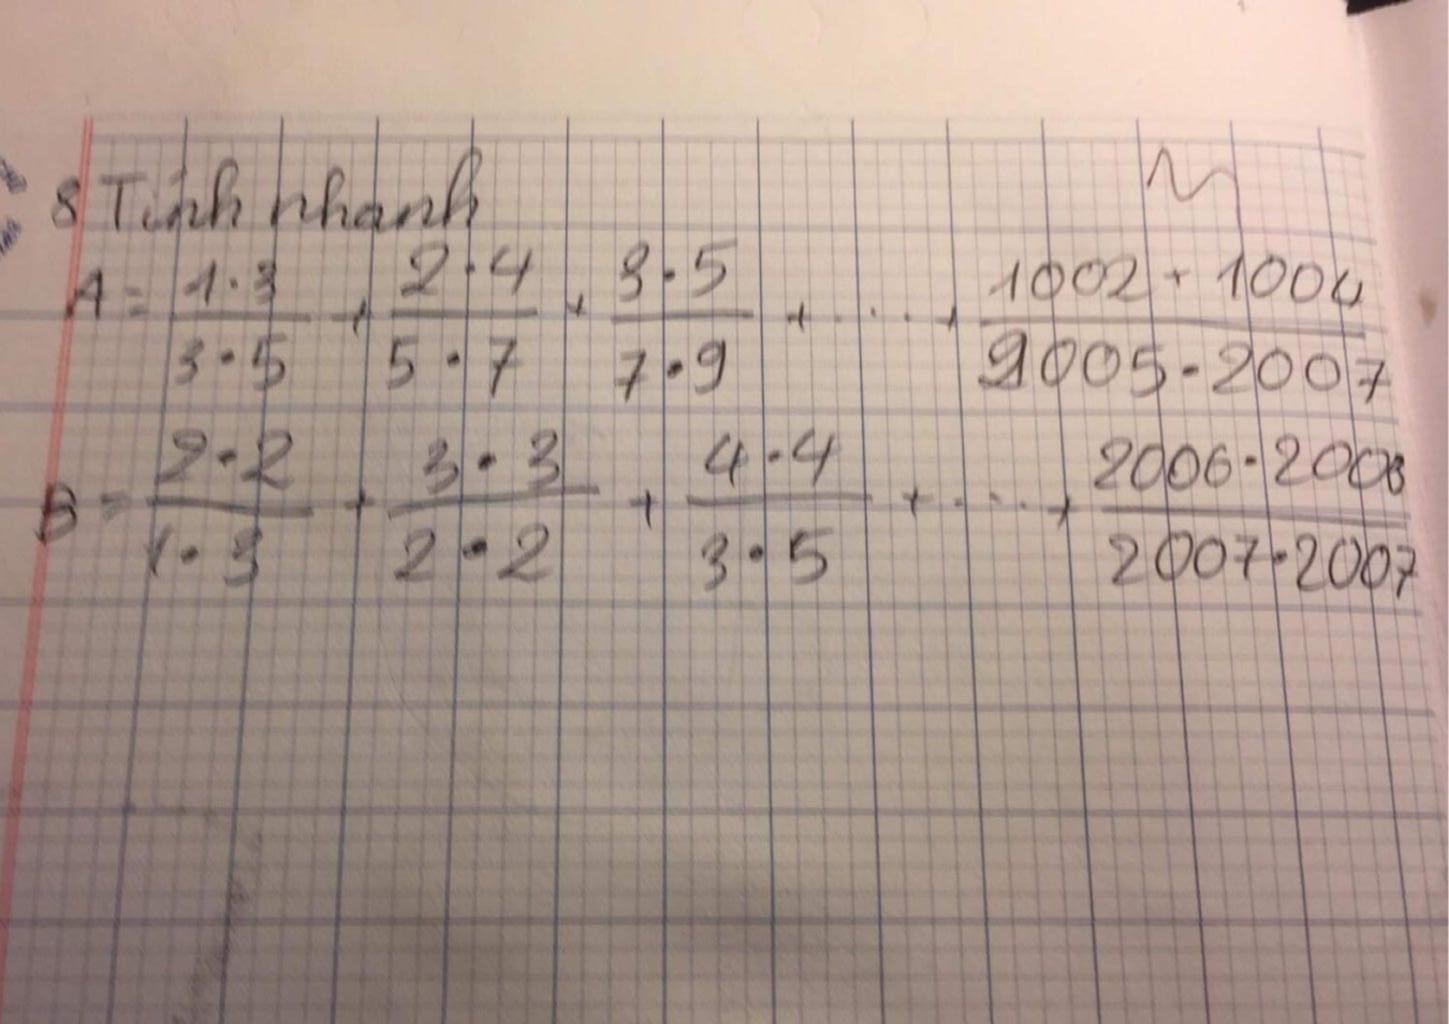 8 Tính nhanh
A = \frac{1 \cdot 3}{3 \cdot 5} + \frac{2 \cdot 4}{5 \cdot 7} + \frac{3 \cdot 5}{7 \cdot 9} + \cdots + \frac{1002 + 1004}{2005 \cdot 2007}
B = \frac{2 \cdot 2}{1 \cdot 3} + \frac{3 \cdot 3}{2 \cdot 2} + \frac{4 \cdot 4}{3 \cdot 5} + \cdots + \frac{2006 \cdot 2006}{2007 \cdot 2007}